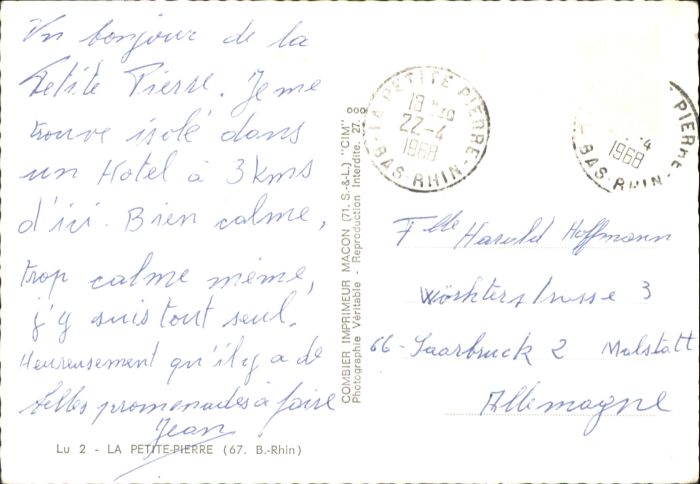 Un bonjour de la
Petite Pierre. Je me
trouve isolé dans
un Hotel à 3 kms
d'ici. Bien calme,
trop calme même,
j'y suis tout seul.
Heureusement qu'il y a de
belles promenades à faire
Jean
Lu 2 - LA PETITE-PIERRE (67. B.-Rhin)
COMBIER IMPRIMEUR MACON (71. S.-&-L.) "CIM"
Photographie Véritable - Reproduction Interdite. 27.
LA PETITE PIERRE
18 H30
22-4
1968
BAS-RHIN
PIERRE
4
1968
BAS-RHIN
Flle Harold Hoffmann
3
66 - Saarbruck 2 Malstatt
Allemagne